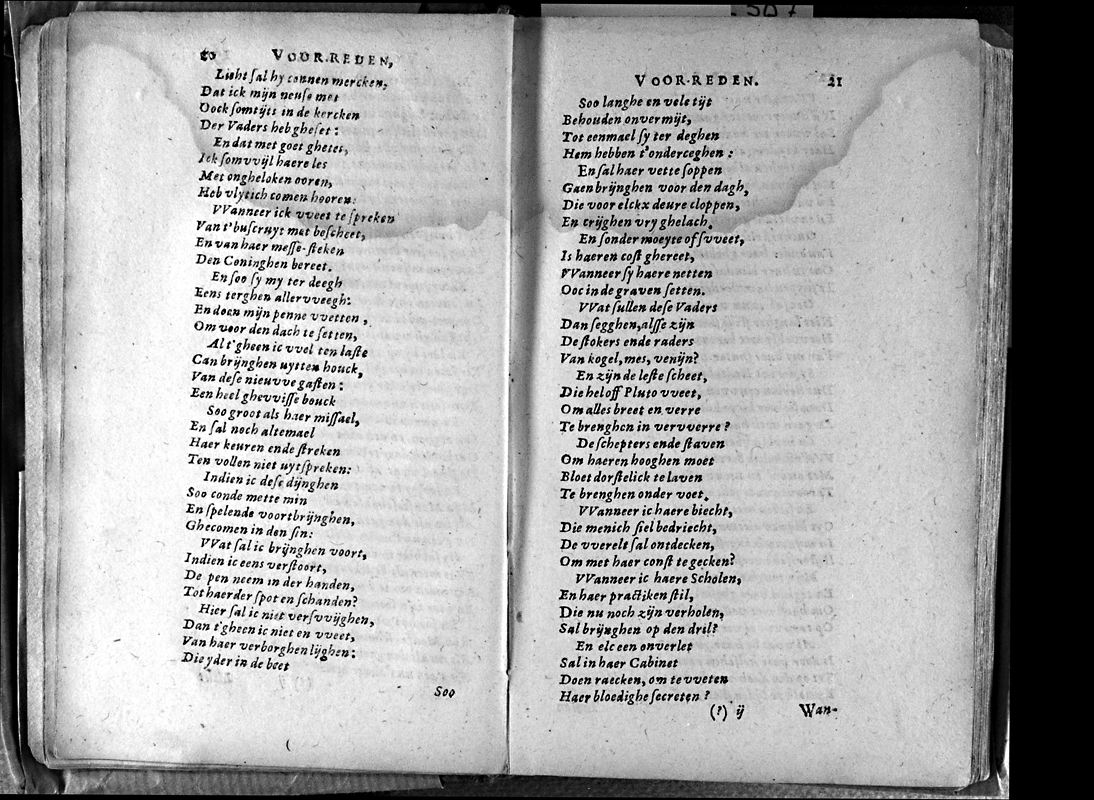 20 VOOR-REDEN,
Licht sal hy connen mercken,
Dat ick mijn neuse met
Oock somtijts in de kercken
Der Vaders heb gheset:
En dat met goet ghetes,
Ick somvvijl haere les
Met ongheloken ooren,
Heb vlytich comen hooren:
VVanneer ick vveet te spreken
Van t'buscruyt met bescheet,
En van haer messe-steken
Den Coninghen bereet.
En soo sy my ter deegh
Eens terghen allervveegh:
En doen mijn penne vvetten,
Om voor den dach te setten,
Al t'gheen ic vvel ten laste
Can brijnghen uytten houck,
Van dese nieuvve gasten:
Een heel ghevvisse bouck
Soo groot als haer missael,
En sal noch altemael
Haer keuren ende streken
Ten vollen niet uytspreken:
Indien ic dese dijnghen
Soo conde mette min
En spelende voortbrijnghen,
Ghecomen in den sin:
VVat sal ic brijnghen voort,
Indien ic eens verstoort,
De pen neem in der handen,
Tot haerder spot en schanden?
Hier sal ic niet versvvijghen,
Dan t'gheen ic niet en vveet,
Van haer verborghen lijghen:
Die yder in de beet
Soo
VOOR-REDEN. 21
Soo langhe en vele tijt
Behouden onvermijt,
Tot eenmael sy ter deghen
Hem hebben t'onderceghen:
En sal haer vette soppen
Gaen brijnghen voor den dagh,
Die voor elckx deure cloppen,
En crijghen vry ghelach.
En sonder moeyte of svveet,
Is haeren cost ghereet,
VVanneer sy haere netten
Ooc in de graven setten.
VVat sullen dese Vaders
Dan segghen, alsse zijn
De stokers ende raders
Van kogel, mes, venijn?
En zijn de leste scheet,
Die hel off Pluto vveet,
Om alles breet en verre
Te brenghen in vervverre?
De schepters ende staven
Om haeren hooghen moet
Bloet dorstelick te laven
Te brenghen onder voet.
VVanneer ic haere biecht,
Die menich siel bedriecht,
De vverelt sal ontdecken,
Om met haer const te gecken?
VVanneer ic haere Scholen,
En haer practiken stil,
Die nu noch zijn verholen,
Sal brijnghen op den dril?
En elc een onverlet
Sal in haer Cabinet
Doen raecken, om te vveten
Haer bloedighe secreten?
(?) ij Wan-